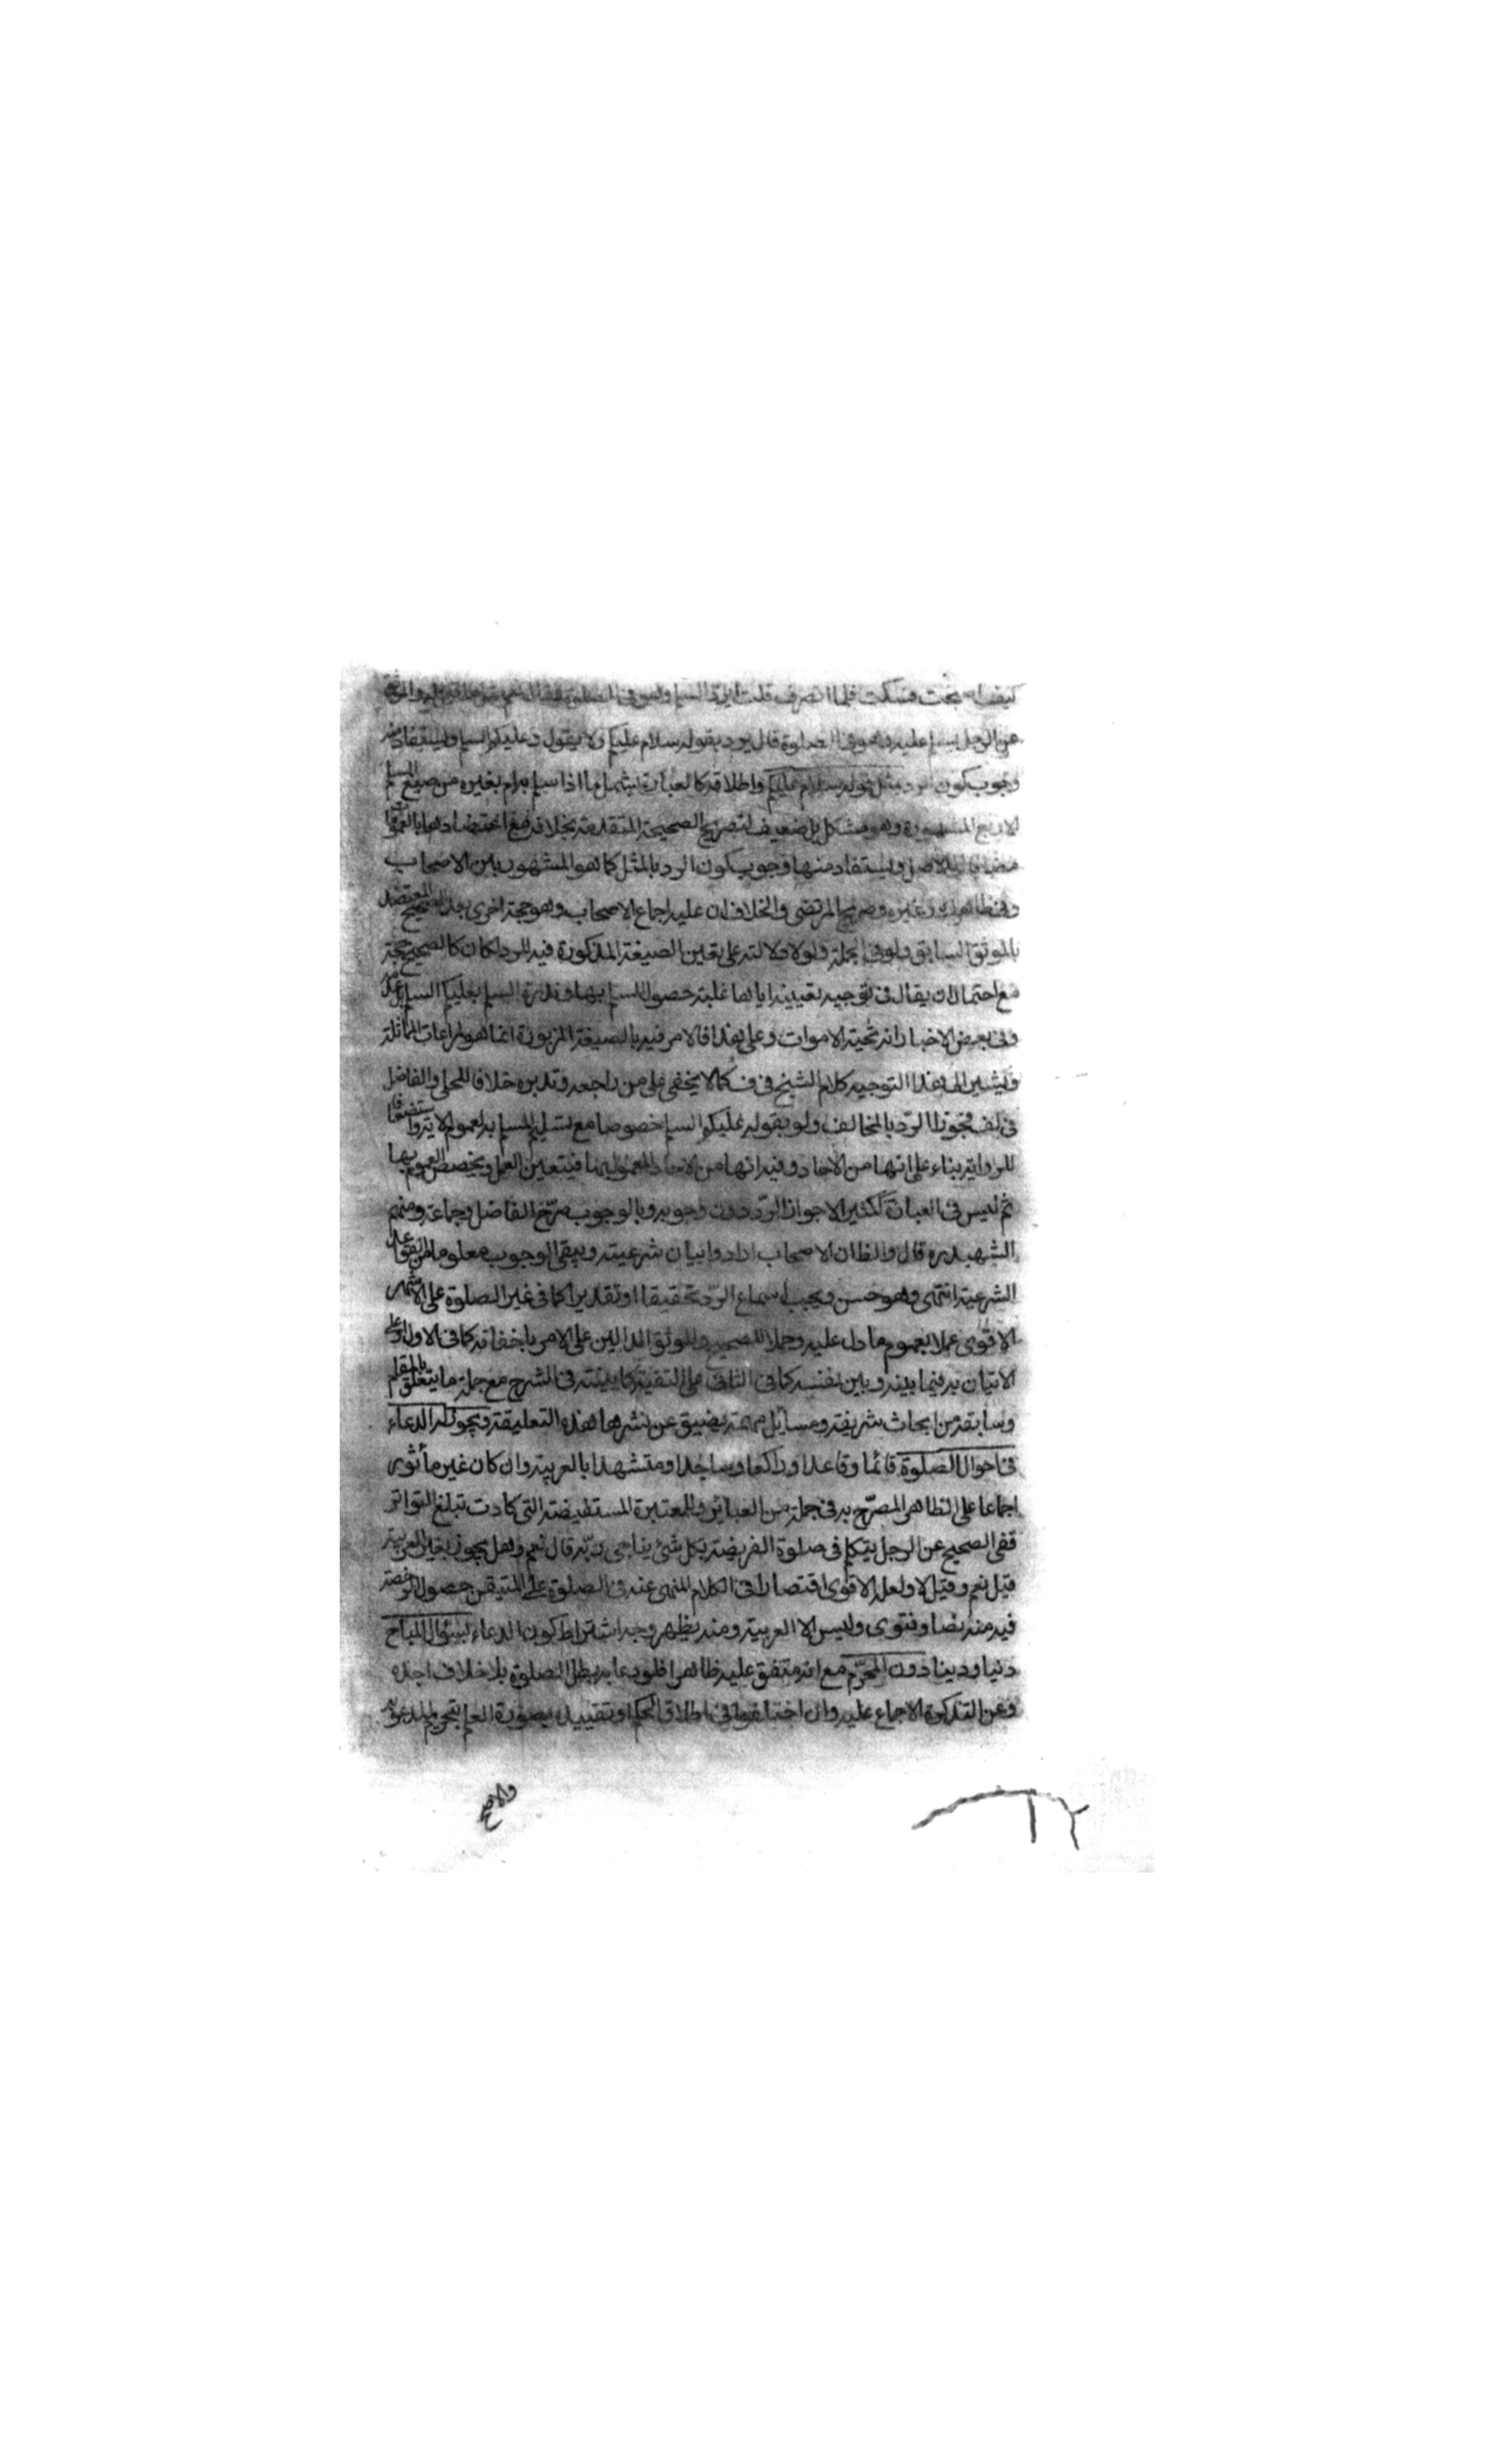 كيف اصبحت فسكت فلما انصرف قلت ايرد السلم وهو في الصلوة فقال نعم مثل ما قيل له والموثق
عن الرجل يسلم عليه وهو في الصلوة قال يرد بقوله سلام عليكم ولا يقول وعليكم السلم ويستفاد منه
وجوب كون الرد بمثل قوله سلام عليكم واطلاقه كالعبارة يشمل ما اذا سلم برام بغيره من صيغ السلم
الاربع المشهورة وهو مشكل بل ضعيف لتصريح الصحيحة المتقدمة بخلافه مع اعتضادها بالعمومات
مضافا الى الاصل ويستفاد منها وجوب كون الرد بالمثل كما هو المشهور بين الاصحاب
وفي ظاهر وغيره وصريح المرتضى والخلاف ان عليه اجماع الاصحاب وهو حجة اخرى بعد الصحيح المعتضد
بالموثق السابق ولو في الجملة ولولا دلالته على تعين الصيغة المذكورة فيه للرد لكان كالصحيح حجة
مع احتمال ان يقال في توجيه تعيينه اياها غلبة حصول السلم بها وندرة السلم بعليكم السلم بل عن
وفي بعض الاخبار انه تحية الاموات وعلى هذا فالامر فيه بالصيغة المزبورة انما هو لمراعات المماثلة
ويشير الى هذا التوجيه كلام الشيخ في ف كما لا يخفى على من راجعه وتدبره خلافا للحلي والفاضل
في لف فجوزا الرد بالمخالف ولو بقوله عليكم السلم خصوصا مع تسليم المسلم به لعموم الاية واستضعفا
للرواية بناء على انها من الآحاد وفيه انها من الآحاد المعمول بها فيتعين العمل ويخصص العموم بها
ثم ليس في العبارة ككثير الا جواز الرد دون وجوبه وبالوجوب صرّح الفاضل وجماعة ومنهم
الشهيد ره قال والظ ان الاصحاب ارادوا بيان شرعيته ويبقى الوجوب معلوما من القواعد
الشرعية انتهى وهو حسن ويجب اسماع الرد تحقيقا او تقديرا كما في غير الصلوة على الاشهر
الاقوى عملا بعموم ما دل عليه وحملا للصحيح والموثق الدالين على الامر باخفاته كما في الاول وعلى
الاتيان به فيما بينه وبين نفسه كما في الثاني على التقية كما بينته في الشرح مع جملة ما يتعلق بالمقام
وسابقه من ابحاث شريفة ومسايل مهمة يضيق عن نشرها هذه التعليقة ويجوز له الدعاء
في احوال الصلوة قائما وقاعدا وراكعا وساجدا ومتشهدا بالعربية وان كان غير مأثور
اجماعا على الظاهر المصرّح به في جملة من العباير وللمعتبرة المستفيضة التي كادت تبلغ التواتر
ففي الصحيح عن الرجل يتكلم في صلوة الفريضة بكل شئ يناجى ربّه قال نعم وهل يجوز بغير العربية
قيل نعم وقيل لا ولعله الاقوى اقتصارا في الكلام المنهى عنه في الصلوة على المتيقن حصول الرخصة
فيه منه نصا وفتوى وليس الا العربية ومنه يظهر وجه اشتراط كون الدعاء بسؤال المباح
دنيا ودينا دون المحرّم مع انه متفق عليه ظاهرا فلو دعا به بطل الصلوة بلا خلاف اجده
وعن التذكرة الاجماع عليه وان اختلفوا في اطلاق الحكم او تقييده بصورة العلم بتحريم المدعو به
والاصح